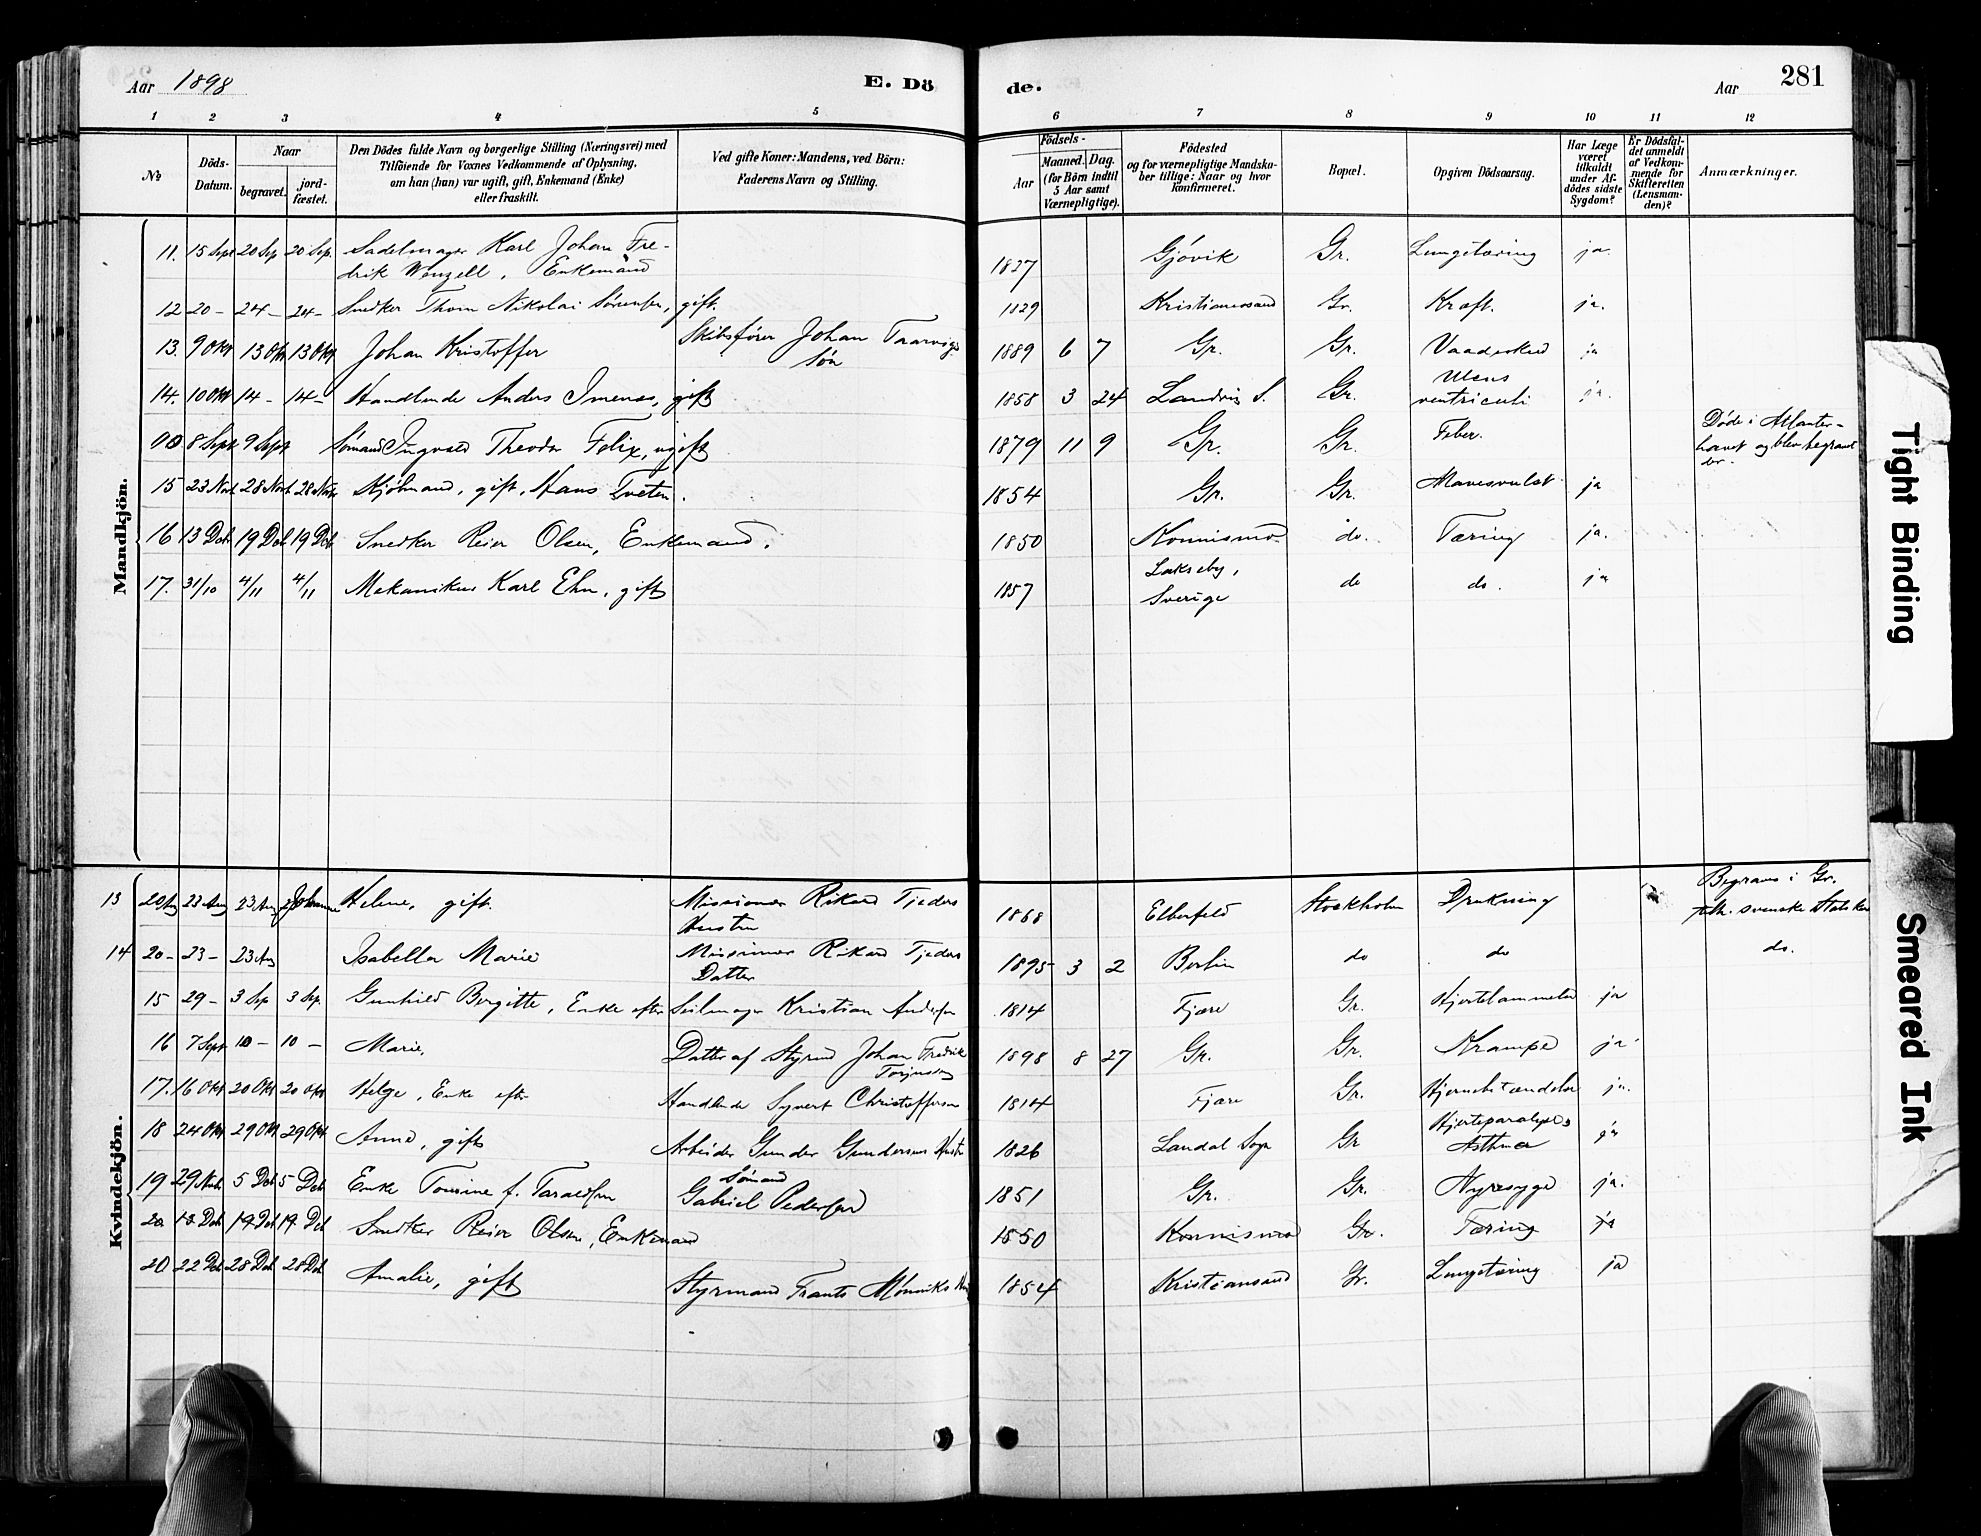 Aar 1898
E. Dö
de.
Aar
281
1 2 3 4 5 6 7 8 9 10 11 12
No
Döds-Datum.
Naar
begravet.
jord-fæstet.
Den Dödes fulde Navn og borgerlige Stilling (Næringsvei) med
Tilföiende for Voxnes Vedkommende af Oplysning,
om han (hun) var ugift, gift, Enkemand (Enke)
eller fraskilt.
Ved gifte Koner: Mandens, ved Börn:
Faderens Navn og Stilling.
Födsels-
Aar
Maaned. Dag.
(for Börn indtil
5 Aar samt
Værnepligtige).
Födested
og for værnepligtige Mandska-
ber tillige: Naar og hvor
konfirmeret.
Bopæl.
Opgiven Dödsaarsag.
Har Læge
været
tilkaldt
under Af-
dödes sidste
Sygdom?
Er Dödsfal-
det anmeldt
af Vedkom-
mende for
Skifteretten
(Lensman-
den)?
Anmærkninger.
Mandkjön.
11. 15 Sept 20 Sep 20 Sep. Sadelmager Karl Johan Fre-
drik Wenzell, Enkemand 1837 Gjøvik Gr. Lungetæring ja.
12 20 - 24 - 24 - Snedker Thom Nikolai Sørensen, gift. 1829 Kristianssand Gr. Kræft. ja.
13. 9 Okt 13 Okt 13 Okt Johan Kristoffer Skibsfører Johan Taarvigs
Søn 1889 6 7 Gr. Gr. Vaadeskud ja
14. 10 Okt 14 - 14 - Handlende Anders Imenes, gift 1858 3 24 Landvig S. Gr. Ulcus
ventriculi ja.
8 Sept 9 Sept Sømand Ingvald Theodor Felix, ugift 1879 11 9 Gr. Gr. Feber. Døde i Atlanter-
havet og blev begravet
der.
15 23 Novb 28 Novb 28 Novb Kjøbmand, gift, Hans Tveten. 1854 Gr. Gr. Mavesvulst ja
16 13 Deb 19 Deb 19 Deb Snedker Reier Olsen, Enkemand. 1850 Konnismo do. Tæring ja.
17. 31/10 4/11 4/11 Mekanikus Karl Ehn, gift 1857 Lakseby,
Sverige do do. ja
Kvindekjön.
13 20 Aug 23 Aug 23 Aug Johanne Helene, gift. Missionær Rikard Tjeders
Hustru 1868 Elberfeld Stockholm Drukning Begravs i Gr.
svenske Stats Ker
14 20 - 23 - 23 Aug Isabella Marie Missionær Rikard Tjeders
Datter 1895 3 2 Berlin do do do.
15 29 - 3 Sep 3 Sep. Gunhild Bergitte, Enke efter Seilmager Kristian Andersen 1814 Fjære Gr. Hjertelammelse ja
16 7 Sept 10 - 10 - Marie, Datter af Styrmd Johan Fredrik
1898 8 27 Gr. Gr. Krampe ja
17. 16 Okt 20 Okt 20 Okt Helge, Enke efter Handlende Syvert Christoffersen 1814 Fjære Gr. Hjernebetændelse ja.
18 24 Okt 29 Okt 29 Okt Anne, gift Arbeider Gunder Gundersens Hustr 1826 Landal Sogn Gr Hjerteparalyse,
Asthma ja
19 29 Novb 5 Deb 5 Deb Enke Tomine f. Taraldsen Sømand
Gabriel Pedersen 1851 Gr. Gr. Nyresyge ja.
20. 13 Deb 19 Deb 19. Deb Snedker Reier Olsen, Enkemand 1850 Konnismo Gr. Tæring ja
20 22 Deb 28 Deb 28 Deb Amalie, gift Styrmand Frants Mønniks 1854 Kristiansand Gr. Lungetæring ja
Tight Binding
Smeared Ink